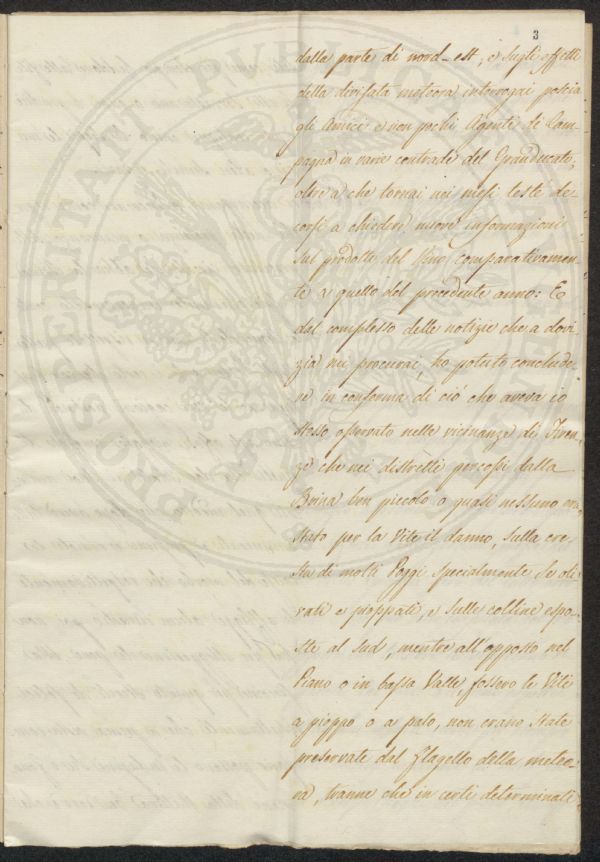 3
dalla parte di nord-est; e sugli effetti
della divisata meteora interrogai poscia
gli Amici e non pochi Agenti di Cam-
pagna in varie contrade del Granducato;
oltre a che tornai nei mesi teste de-
corsi a chiedere nuove informazioni
sul prodotto del Vino comparativamen-
te a quello del precedente anno: E
dal complesso delle notizie che a dovi-
zia mi procurai, ho potuto conclude-
re in conferma di ciò che aveva io
stesso osservato nelle vicinanze di Firen-
ze che nei distretti percossi dalla
Brina ben piccolo o quasi nessuno era
stato per la Vite il danno, sulla cre-
sta di molti Poggi specialmente se oli-
vati e pioppati, e sulle colline espo-
ste al sud, mentre all'opposto nel
Piano o in bassa Valle, fossero le Viti
a pioppo o a palo, non erano state
preservate dal flagello della meteo-
ra, tranne che in certi determinati
PROSPERITATI PUBLICAE